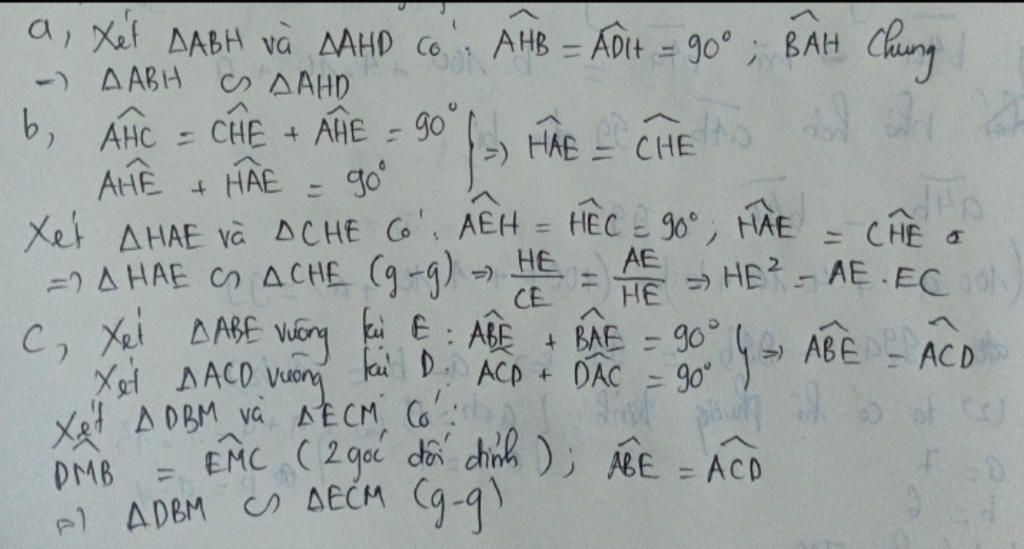 a, Xét ΔABH và ΔAHD có: AHB̂ = ADĤ = 90° ; BAĤ chung
=> ΔABH ∽ ΔAHD
b, AHĈ = CHÊ + AHÊ = 90°
AHÊ + HAÊ = 90° } => HAÊ = CHÊ
Xét ΔHAE và ΔCHE có: AEĤ = HEĈ = 90° ; HAÊ = CHÊ
=> ΔHAE ∽ ΔCHE (g-g) => HE/CE = AE/HE => HE² = AE . EC
c, Xét ΔABE vuông tại E : ABÊ + BAÊ = 90°
Xét ΔACD vuông tại D : ACD̂ + DAĈ = 90° } => ABÊ = ACD̂
Xét ΔDBM và ΔECM có:
DMB̂ = EMĈ (2 góc đối đỉnh) ; ABÊ = ACD̂
=> ΔDBM ∽ ΔECM (g-g)